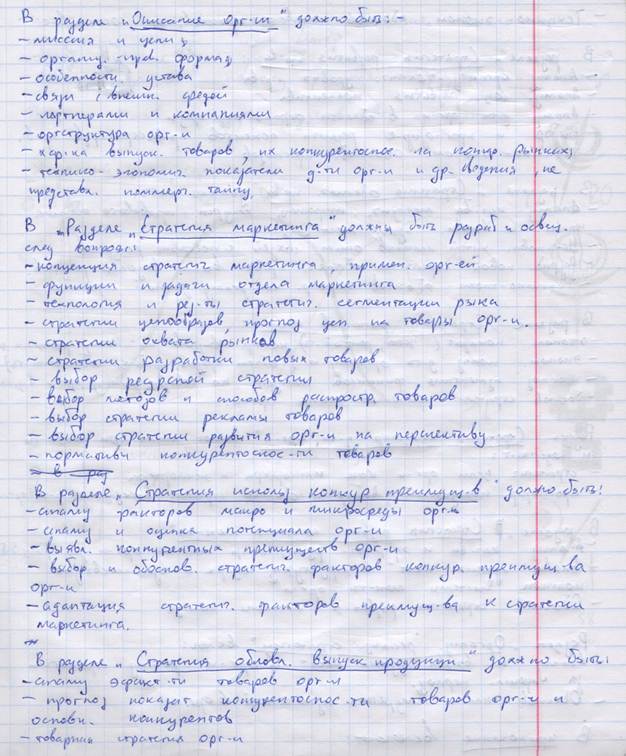 В разделе „Описание орг-ии" должно быть: -
- миссия и цели;
- организ.-прав. форма;
- особенности устава
- связи с внешн. средой
- партнерами и компаниями
- оргструктура орг-и
- хар-ка выпуск. товаров, их конкурентоспос. на конкр. рынках;
- технико-экономич. показатели д-ти орг-и и др. сведения, не
представл. коммерч. тайну,
В „Разделе „Стратегия маркетинга" должны быть разраб и освещ.
след вопросы:
- концепция стратег. маркетинга, примен. орг-ей
- функции и задачи отдела маркетинга
- технология и рез-ты стратегич. сегментации рынка
- стратегии ценообразов, прогноз цен на товары орг-и.
- стратегии охвата рынков
- стратегии разработки новых товаров
- выбор ресурсной стратегии
- выбор методов и способов распростр. товаров
- выбор стратегии рекламы товаров
- выбор стратегии развития орг-и на перспективу
- нормативы конкурентоспос-ти товаров
- в раз
В разделе „Стратегия использ конкур преимущ-в" должно быть:
- анализ факторов макро и микросреды орг-и
- анализ и оценка потенциала орг-и
- выявл. конкурентных преимуществ орг-и
- выбор и обоснов. стратегич. факторов конкур. преимущ-ва
орг-и
- адаптация стратегич. факторов преимущ-ва к стратегии
маркетинга.
В разделе „Стратегия обновл. выпуск продукции" должно быть:
- анализ эффект-ти товаров орг-и
- прогноз показат конкурентоспос-ти товаров орг-и и
основн. конкурентов
- товарная стратегия орг-и